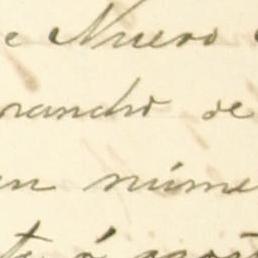 e Nuevo
rancho de
en núme
ta ó